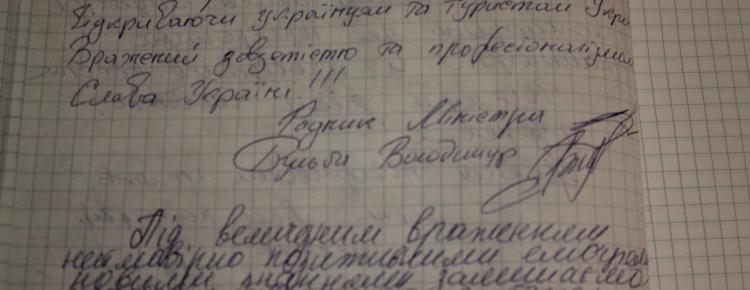 Відкриваючи українцям та туристам Укра
Вражений завзятістю та професіоналізмом
Слава Україні!!!
Радник Міністра
Бульба Володимир
Під величним враженням
неймовірно позитивними емоціями
новими знаннями залишаємо